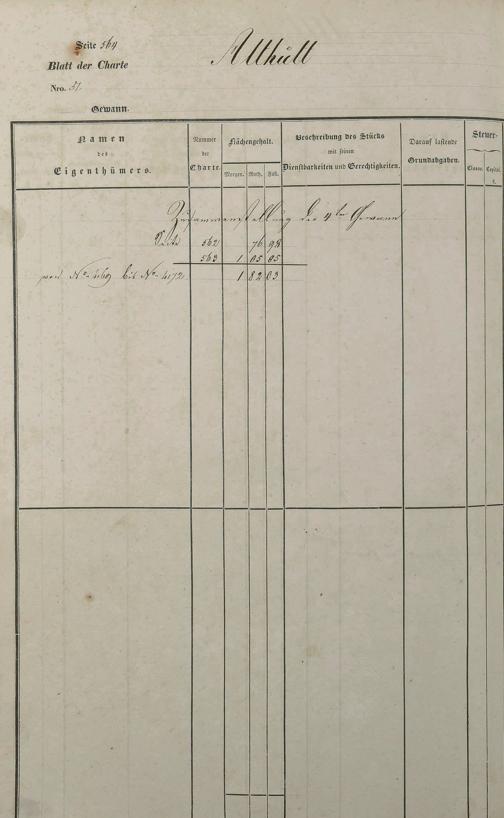 Seite 564
Althütt
Blatt der Charte
Nro. 51.
Gewann.
Namen des Eigenthümers.
Nummer der Charte.
Flächengehalt.
Morgen. Ruth. Fuß.
Beschreibung des Stücks mit seinen Dienstbarkeiten und Gerechtigkeiten.
Darauf lastende Grundabgaben.
Steuer-
Classe. Capital.
f.
Zusammenstellung der 4ten Gewann
Seite 562 76 98
563 1 05 05
von No. 4169 bis No. 4172. 1 82 03